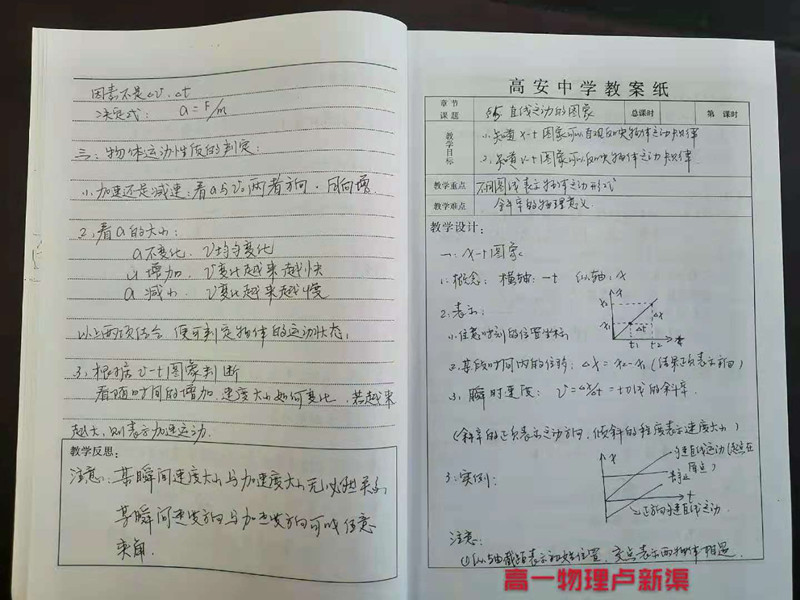 因素不是△v、△t
决定式: a=F/m
三、物体运动性质的判定:
1、加速还是减速:看a与v₀两者方向,同向增
2、看a的大小:
a不变化,v均匀变化
a增加,v变化越来越快
a减小,v变化越来越慢
以上两项结合,便可判定物体的运动状态,
3、根据v-t图象判断
看随时间的增加,速度大小如何变化,若越来
越大,则表示加速运动.
教学反思:
注意:某瞬间速度大小与加速度大小无必然关系
某瞬间速度方向与加速度方向可成任意
夹角.
高安中学教案纸
章节课题 §5 直线运动的图象 总课时 第 课时
教学目标
1、知道x-t图象可以直观反映物体运动规律
2、知道v-t图象可以反映物体运动规律
教学重点 不同图线表示物体运动形式
教学难点 斜率的物理意义
教学设计:
一、x-t图象
1、概念: 横轴:-t 纵轴:x
2、表示:
1、任意时刻的位置坐标
2、某段时间内的位移:△x=x₂-x₁(结果正负表示方向)
3、瞬时速度: v=△x/△t=切线的斜率
(斜率的正负表示运动方向,倾斜的程度表示速度大小)
x
x₂
x₁
△x
△t
t₁ t₂ t
3、实例:
x
匀速直线运动(起点在
原点)
静止
t
正方向匀速直线运动
注意:
①纵轴截距表示初始位置,交点表示两物体相遇
高一物理卢新渠